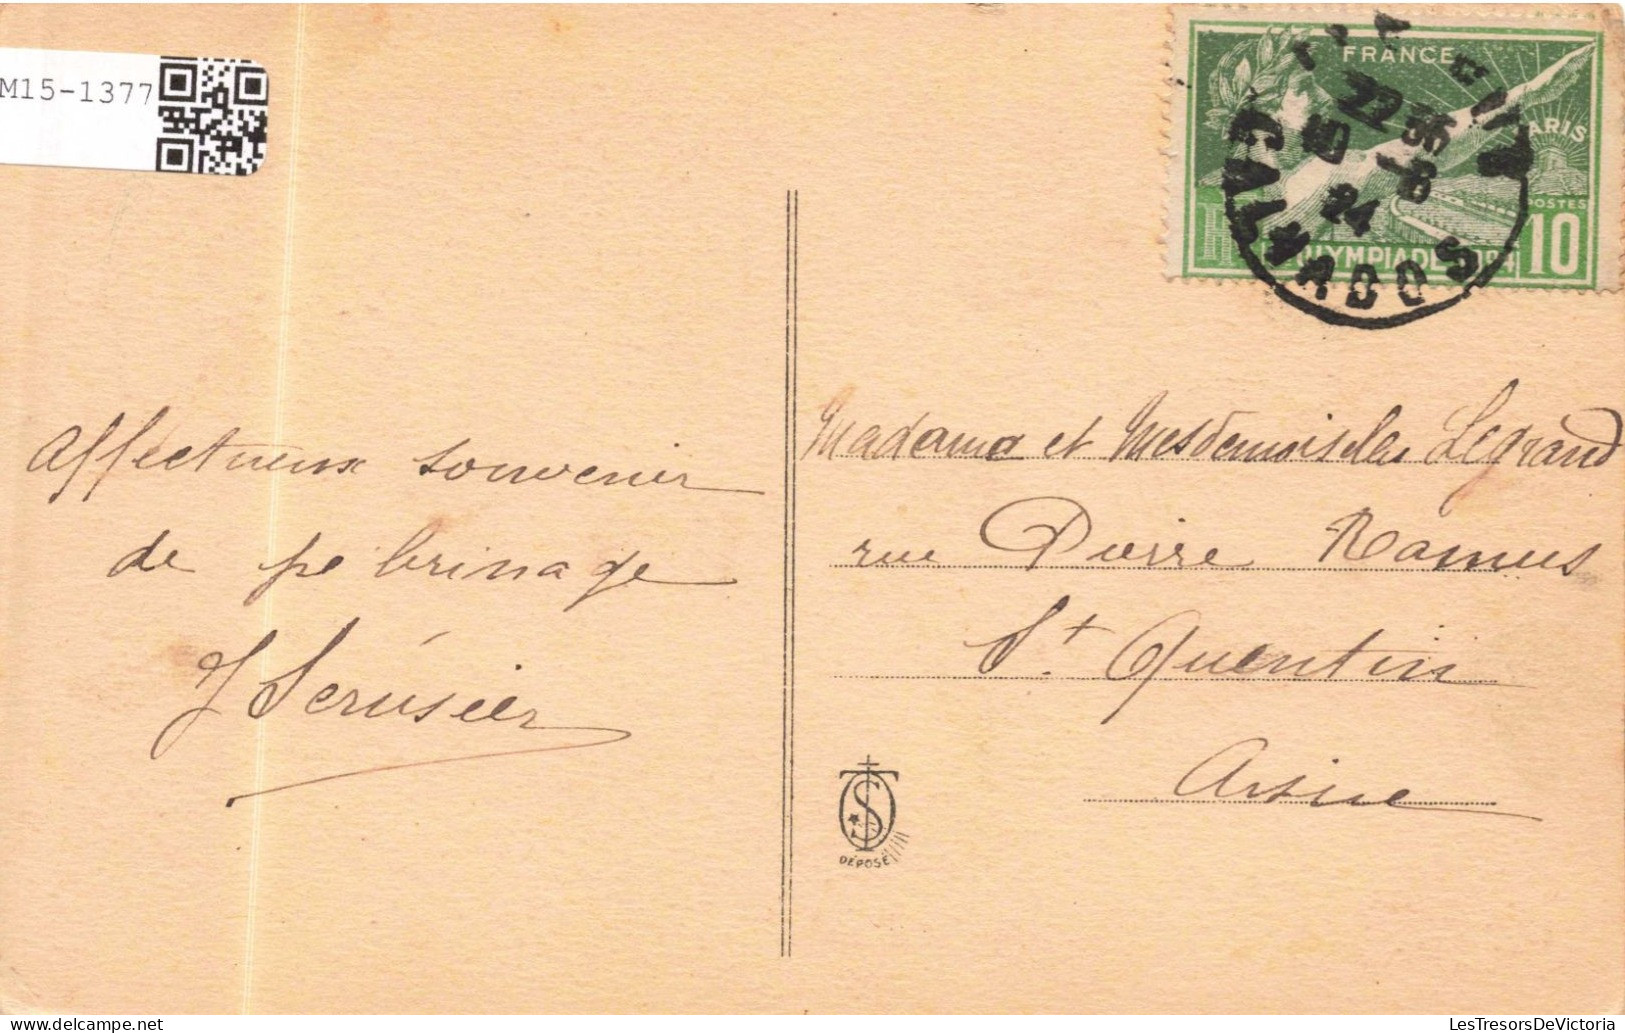 M15-1377
FRANCE
PARIS
POSTES
10
22 35
10 -8
24
CALVADOS
Affectueux souvenir
de pelerinage
J Serusier
Madame et Mesdemoiselles Legrand
rue Pierre Ramus
St Quentin
Aisne
DÉPOSÉ
LesTresorsDeVictoria